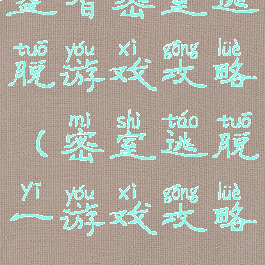 密室逃
tuō yóu xì gōng lüè
脱游戏攻略
mì shì táo tuō
(密室逃脱
yī yóu xì gōng lüè
一游戏攻略